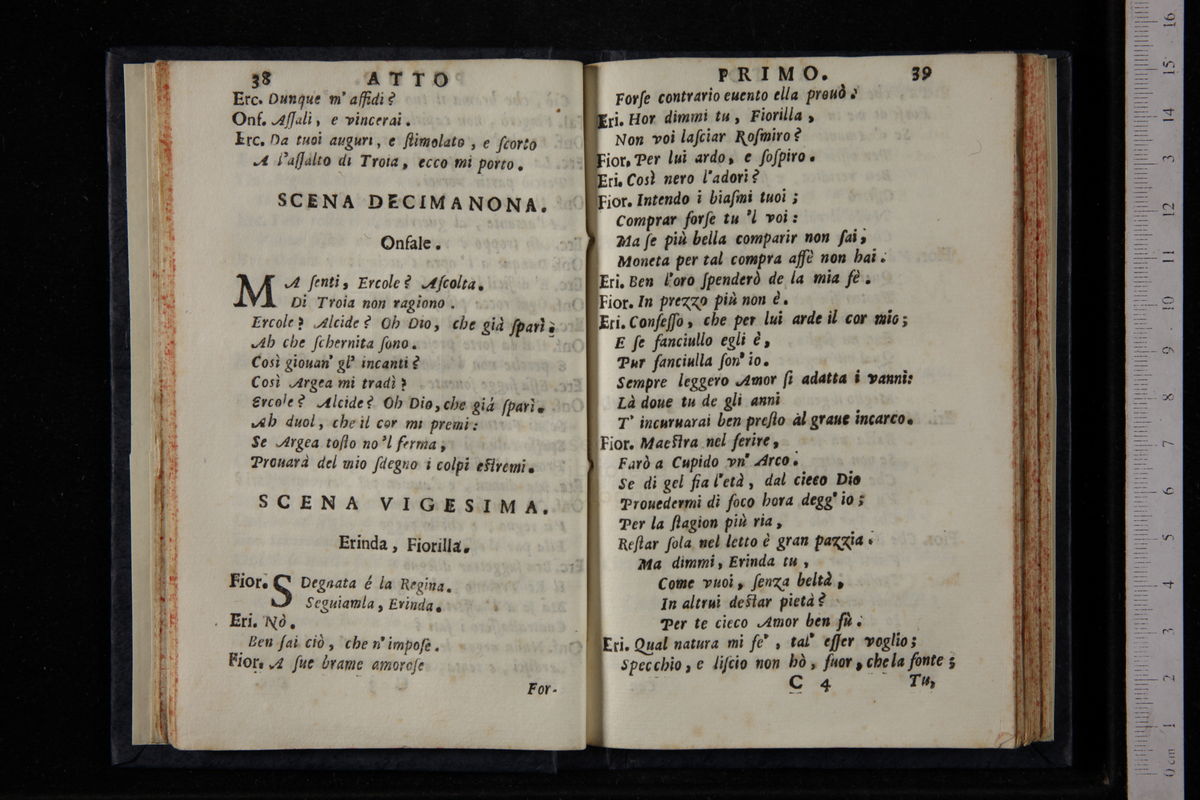 38 ATTO
Erc. Dunque m'affidi?
Onf. Aſſali, e vincerai.
Erc. Da tuoi auguri, e ſtimolato, e ſcorto
A l'aſſalto di Troia, ecco mi porto.
SCENA DECIMANONA.
Onfale.
MA ſenti, Ercole? Aſcolta.
Di Troia non ragiono.
Ercole? Alcide? Oh Dio, che già ſparì.
Ah che ſchernita ſono.
Così giouan' gl' incanti?
Così Argea mi tradì?
Ercole? Alcide? Oh Dio, che già ſparì.
Ah duol, che il cor mi premi:
Se Argea toſto no'l ferma,
Prouarà del mio ſdegno i colpi eſtremi.
SCENA VIGESIMA.
Erinda, Fiorilla.
Fior. SDegnata é la Regina.
Seguiamla, Erinda.
Eri. Nò.
Ben ſai ciò, che n'impoſe.
Fior. A ſue brame amoroſe
For-
PRIMO. 39
Forſe contrario euento ella prouò?
Eri. Hor dimmi tu, Fiorilla,
Non voi laſciar Roſmiro?
Fior. Per lui ardo, e ſoſpiro.
Eri. Così nero l'adori?
Fior. Intendo i biaſmi tuoi;
Comprar forſe tu 'l voi:
Ma ſe più bella comparir non ſai,
Moneta per tal compra affè non hai.
Eri. Ben l'oro ſpenderò de la mia fè.
Fior. In prezzo più non è.
Eri. Confeſſo, che per lui arde il cor mio;
E ſe fanciullo egli è,
Pur fanciulla ſon' io.
Sempre leggero Amor ſi adatta i vanni:
Là doue tu de gli anni
T' incuruarai ben preſto al graue incarco.
Fior. Maeſtra nel ferire,
Farò a Cupido vn' Arco.
Se di gel fia l'età, dal cieco Dio
Prouedermi di foco hora degg' io;
Per la ſtagion più ria,
Reſtar ſola nel letto è gran pazzia.
Ma dimmi, Erinda tu,
Come vuoi, ſenza beltà,
In altrui deſtar pietà?
Per te cieco Amor ben fù.
Eri. Qual natura mi fe', tal' eſſer voglio;
Specchio, e liſcio non hò, fuor, che la fonte;
C 4 Tu,
0 cm 1 2 3 4 5 6 7 8 9 10 11 12 13 14 15 16